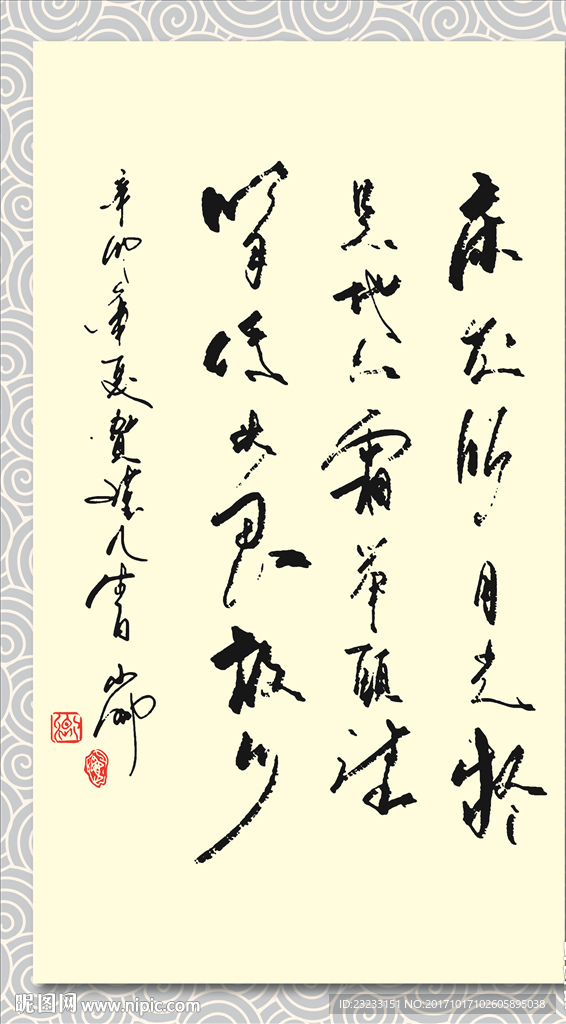 床前明月光疑
是地上霜举頭望
明月低头思故乡
辛卯年夏賀儿生日
昵图网 www.nipic.com
ID:23233151 NO:20171017102605895038